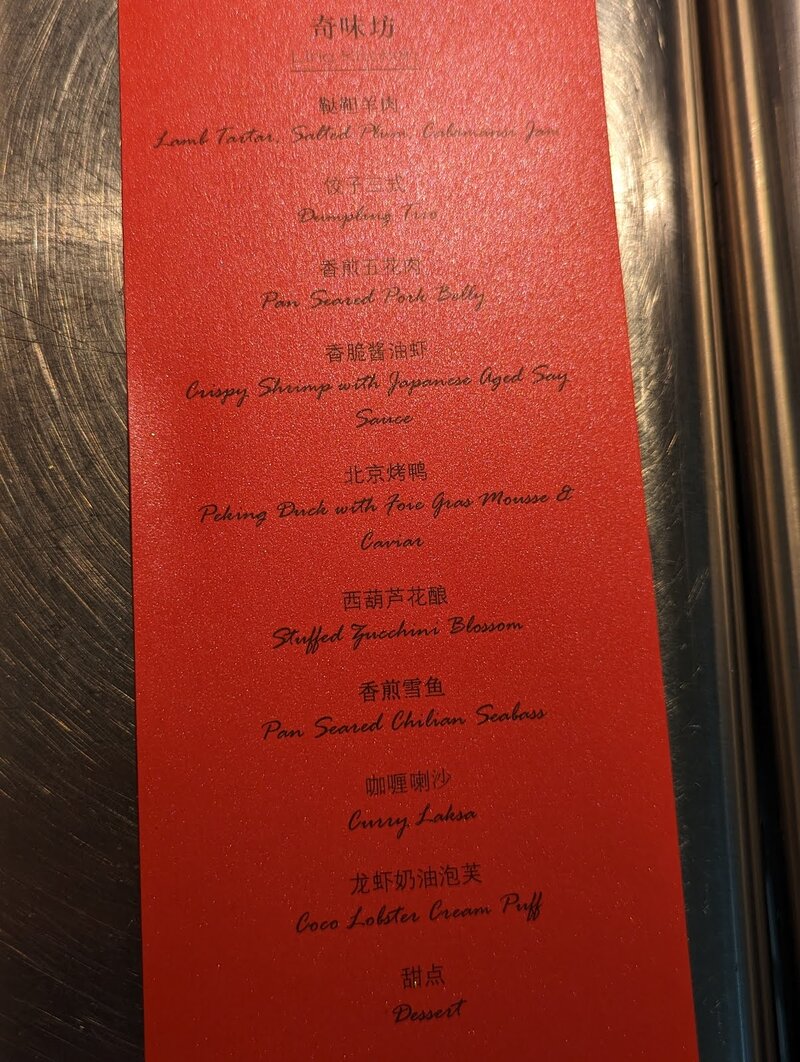 奇味坊
鞑靼羊肉
Lamb Tartar, Salted Plum, Calamansi Jam
饺子三式
Dumpling Trio
香煎五花肉
Pan Seared Pork Belly
香脆酱油虾
Crispy Shrimp with Japanese Aged Soy
Sauce
北京烤鸭
Peking Duck with Foie Gras Mousse &
Caviar
西葫芦花酿
Stuffed Zucchini Blossom
香煎雪鱼
Pan Seared Chilian Seabass
咖喱喇沙
Curry Laksa
龙虾奶油泡芙
Coco Lobster Cream Puff
甜点
Dessert